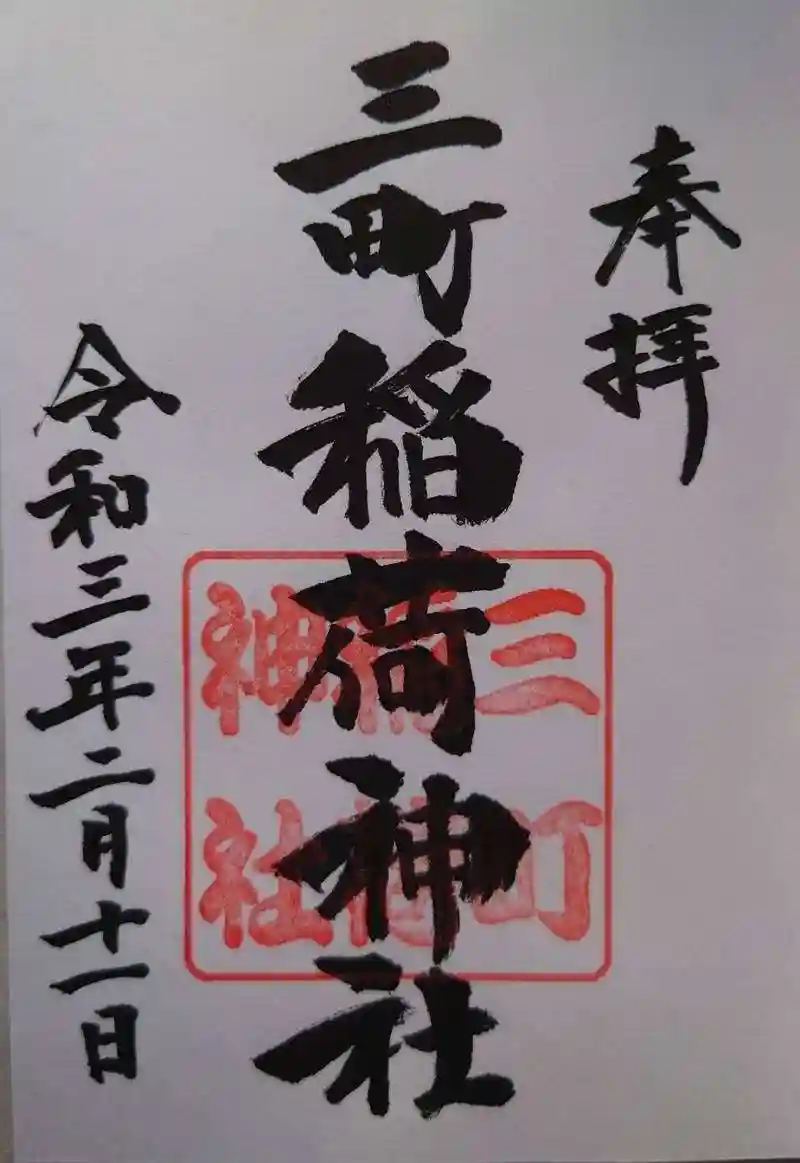 奉拝
三町稲荷神社
令和三年二月十一日
三町
稲荷
神社